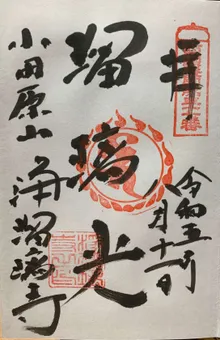 拝
令和五年
月十一日
瑠璃光
小田原山
浄瑠璃寺